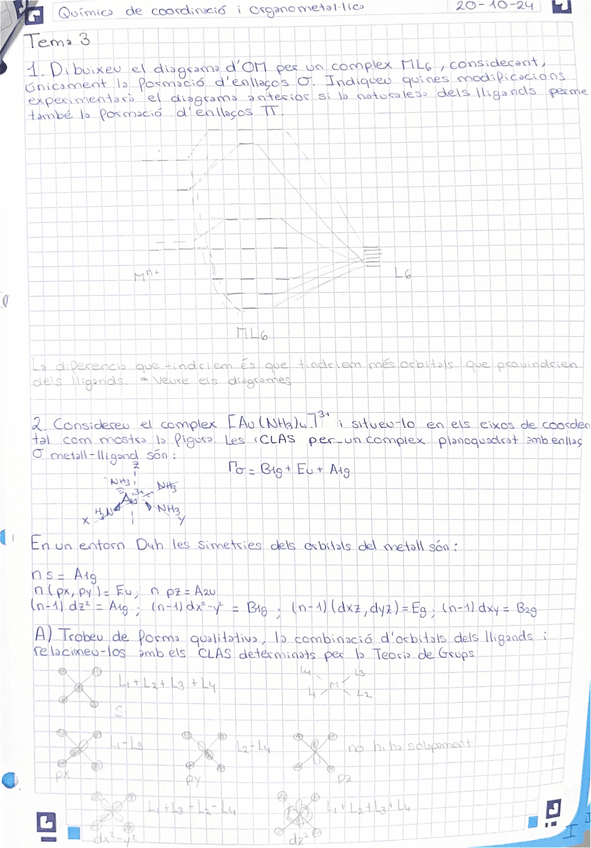 Química de coordinació i organometal·lica 20-10-24
Tema 3
1. Dibuixeu el diagrama d'OM per un complex ML6, considerant,
únicament la formació d'enllaços σ. Indiqueu quines modificacions
experimentarà el diagrama anterior si la naturalesa dels lligands perme
també la formació d'enllaços π.
Mn+
L6
ML6
La diferencia que tindriem és que tindriem més orbitals que provindrien
dels lligands. Veure els diagrames
2. Considereu el complex [Au(NH3)4]3+ i situeu-lo en els eixos de coorden
tal com mostra la figura. Les CLAS per un complex planoquadrat amb enllaç
σ metall-lligand són:
Γσ = B1g + Eu + A1g
z
NH3
NH3
Au 3+
H3N
NH3
x
y
En un entorn D4h les simetries dels orbitals del metall són:
ns = A1g
n(px, py) = Eu, n pz = A2u
(n-1) dz² = A1g; (n-1) dx²-y² = B1g; (n-1)(dxz, dyz) = Eg; (n-1) dxy = B2g
A) Trobeu de forma qualitativa, la combinació d'orbitals dels lligands i
relacineu-los amb els CLAS determinats per la Teoria de Grups
L1 + L2 + L3 + L4
S
L4
L3
M
L1
L2
L1 - L3
px
L2 - L4
py
no hi ha solapament
pz
L1 + L3 - L2 - L4
dx²-y²
L1 + L2 + L3 + L4
dz²